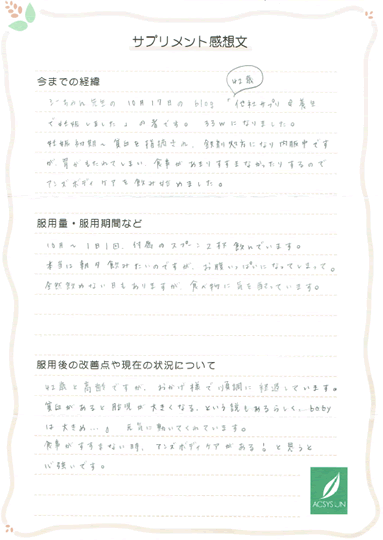 サプリメント感想文
今までの経緯
42歳
10月17日の blog 「他社サプリ&養生
で妊娠しました」の者です。33Wになりました。
妊娠初期〜貧血を指摘され、鉄剤処方になり内服中ですが
が胃がもたれてしまい、食事があまりすすまなかったりするので
アンズボディケアを飲み始めました。
服用量・服用期間など
10月〜 1日1回、付属のスプーン2杯飲んでいます。
本当は朝夕飲みたいのですが、お腹いっぱいになってしまって。
全然飲めない日もありますが、食べ物に気を遣っています。
服用後の改善点や現在の状況について
42歳と高齢ですが、おかげ様で順調に経過しています。
貧血があると胎児が大きくなる、という説もあるらしく、baby
は大きめ…。元気に動いてくれています。
食事がすすまない時、アンズボディケアがある!と思うと
心強いです。
ACSYS JIN